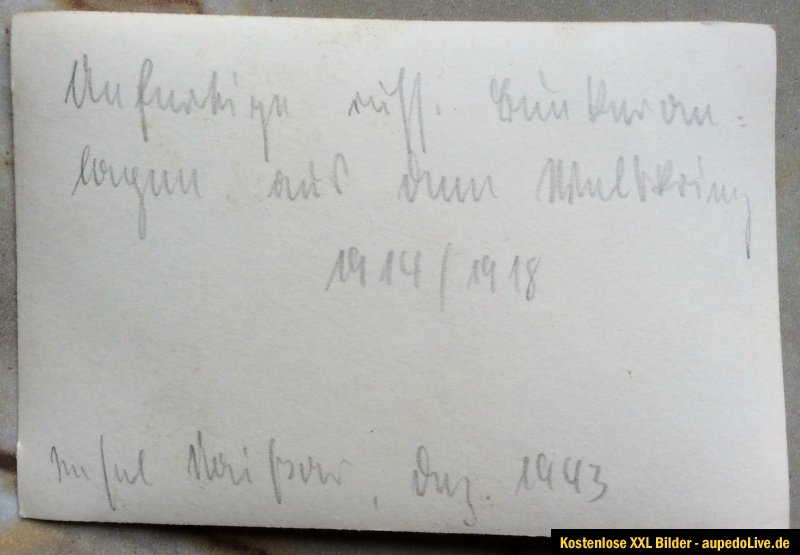 Unfertige russ. Bunkeran=
lagen aus dem Weltkrieg
1914/1918
Insel Naissar, Dez. 1943
Kostenlose XXL Bilder - aupedoLive.de